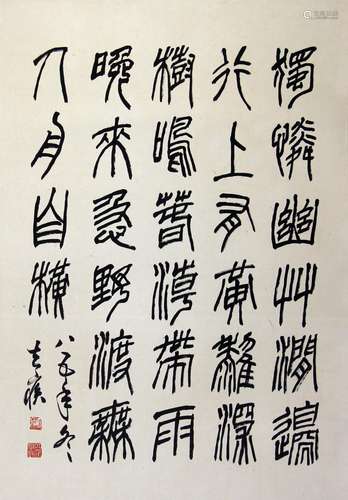 獨憐幽艸澗邊
行上有黃鸝深
樹鳴萅潮帶雨
晚來急野渡無
人舟自橫
八五年冬